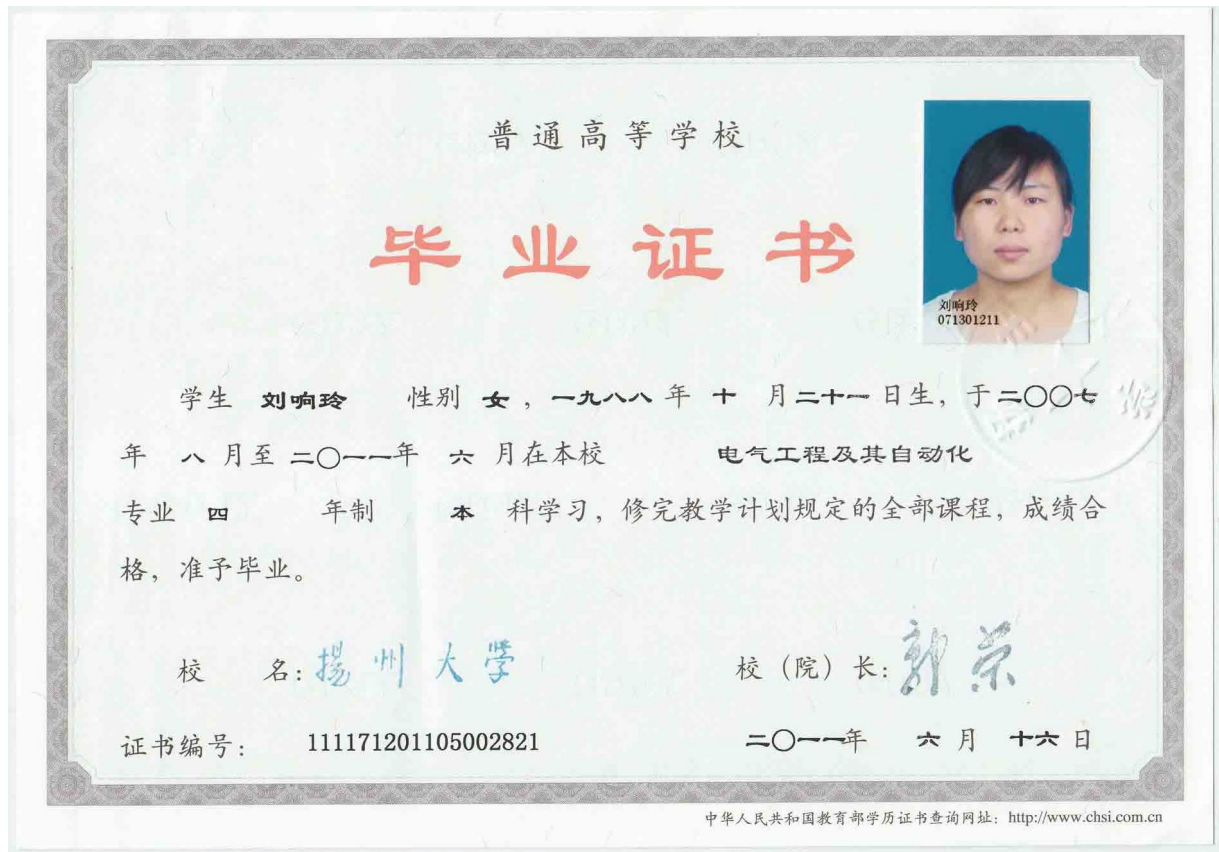 普通高等学校
毕业证书
刘响玲
071301211
学生 刘响玲 性别 女，一九八八年 十 月二十一日生，于二〇〇七
年 八 月至 二〇一一年 六 月在本校 电气工程及其自动化
专业 四 年制 本 科学习，修完教学计划规定的全部课程，成绩合
格，准予毕业。
校 名：揚州大學 校（院）长：郭荣
证书编号： 111171201105002821 二〇一一年 六 月 十六 日
中华人民共和国教育部学历证书查询网址：http://www.chsi.com.cn